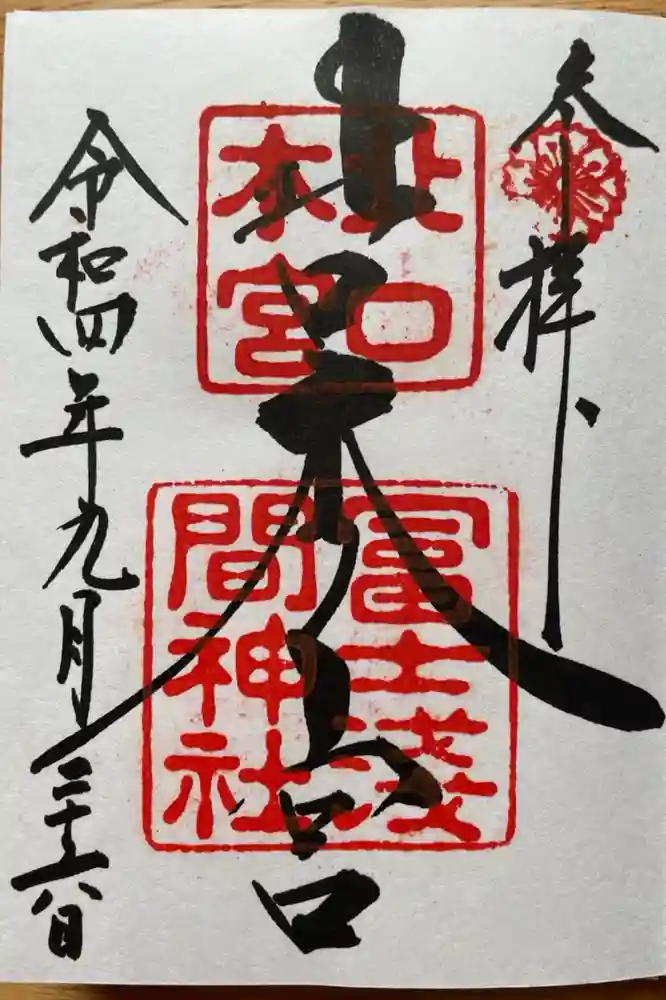 奉拝
北口本宮
北口
本宮
冨士淺
間神社
令和四年九月二十六日